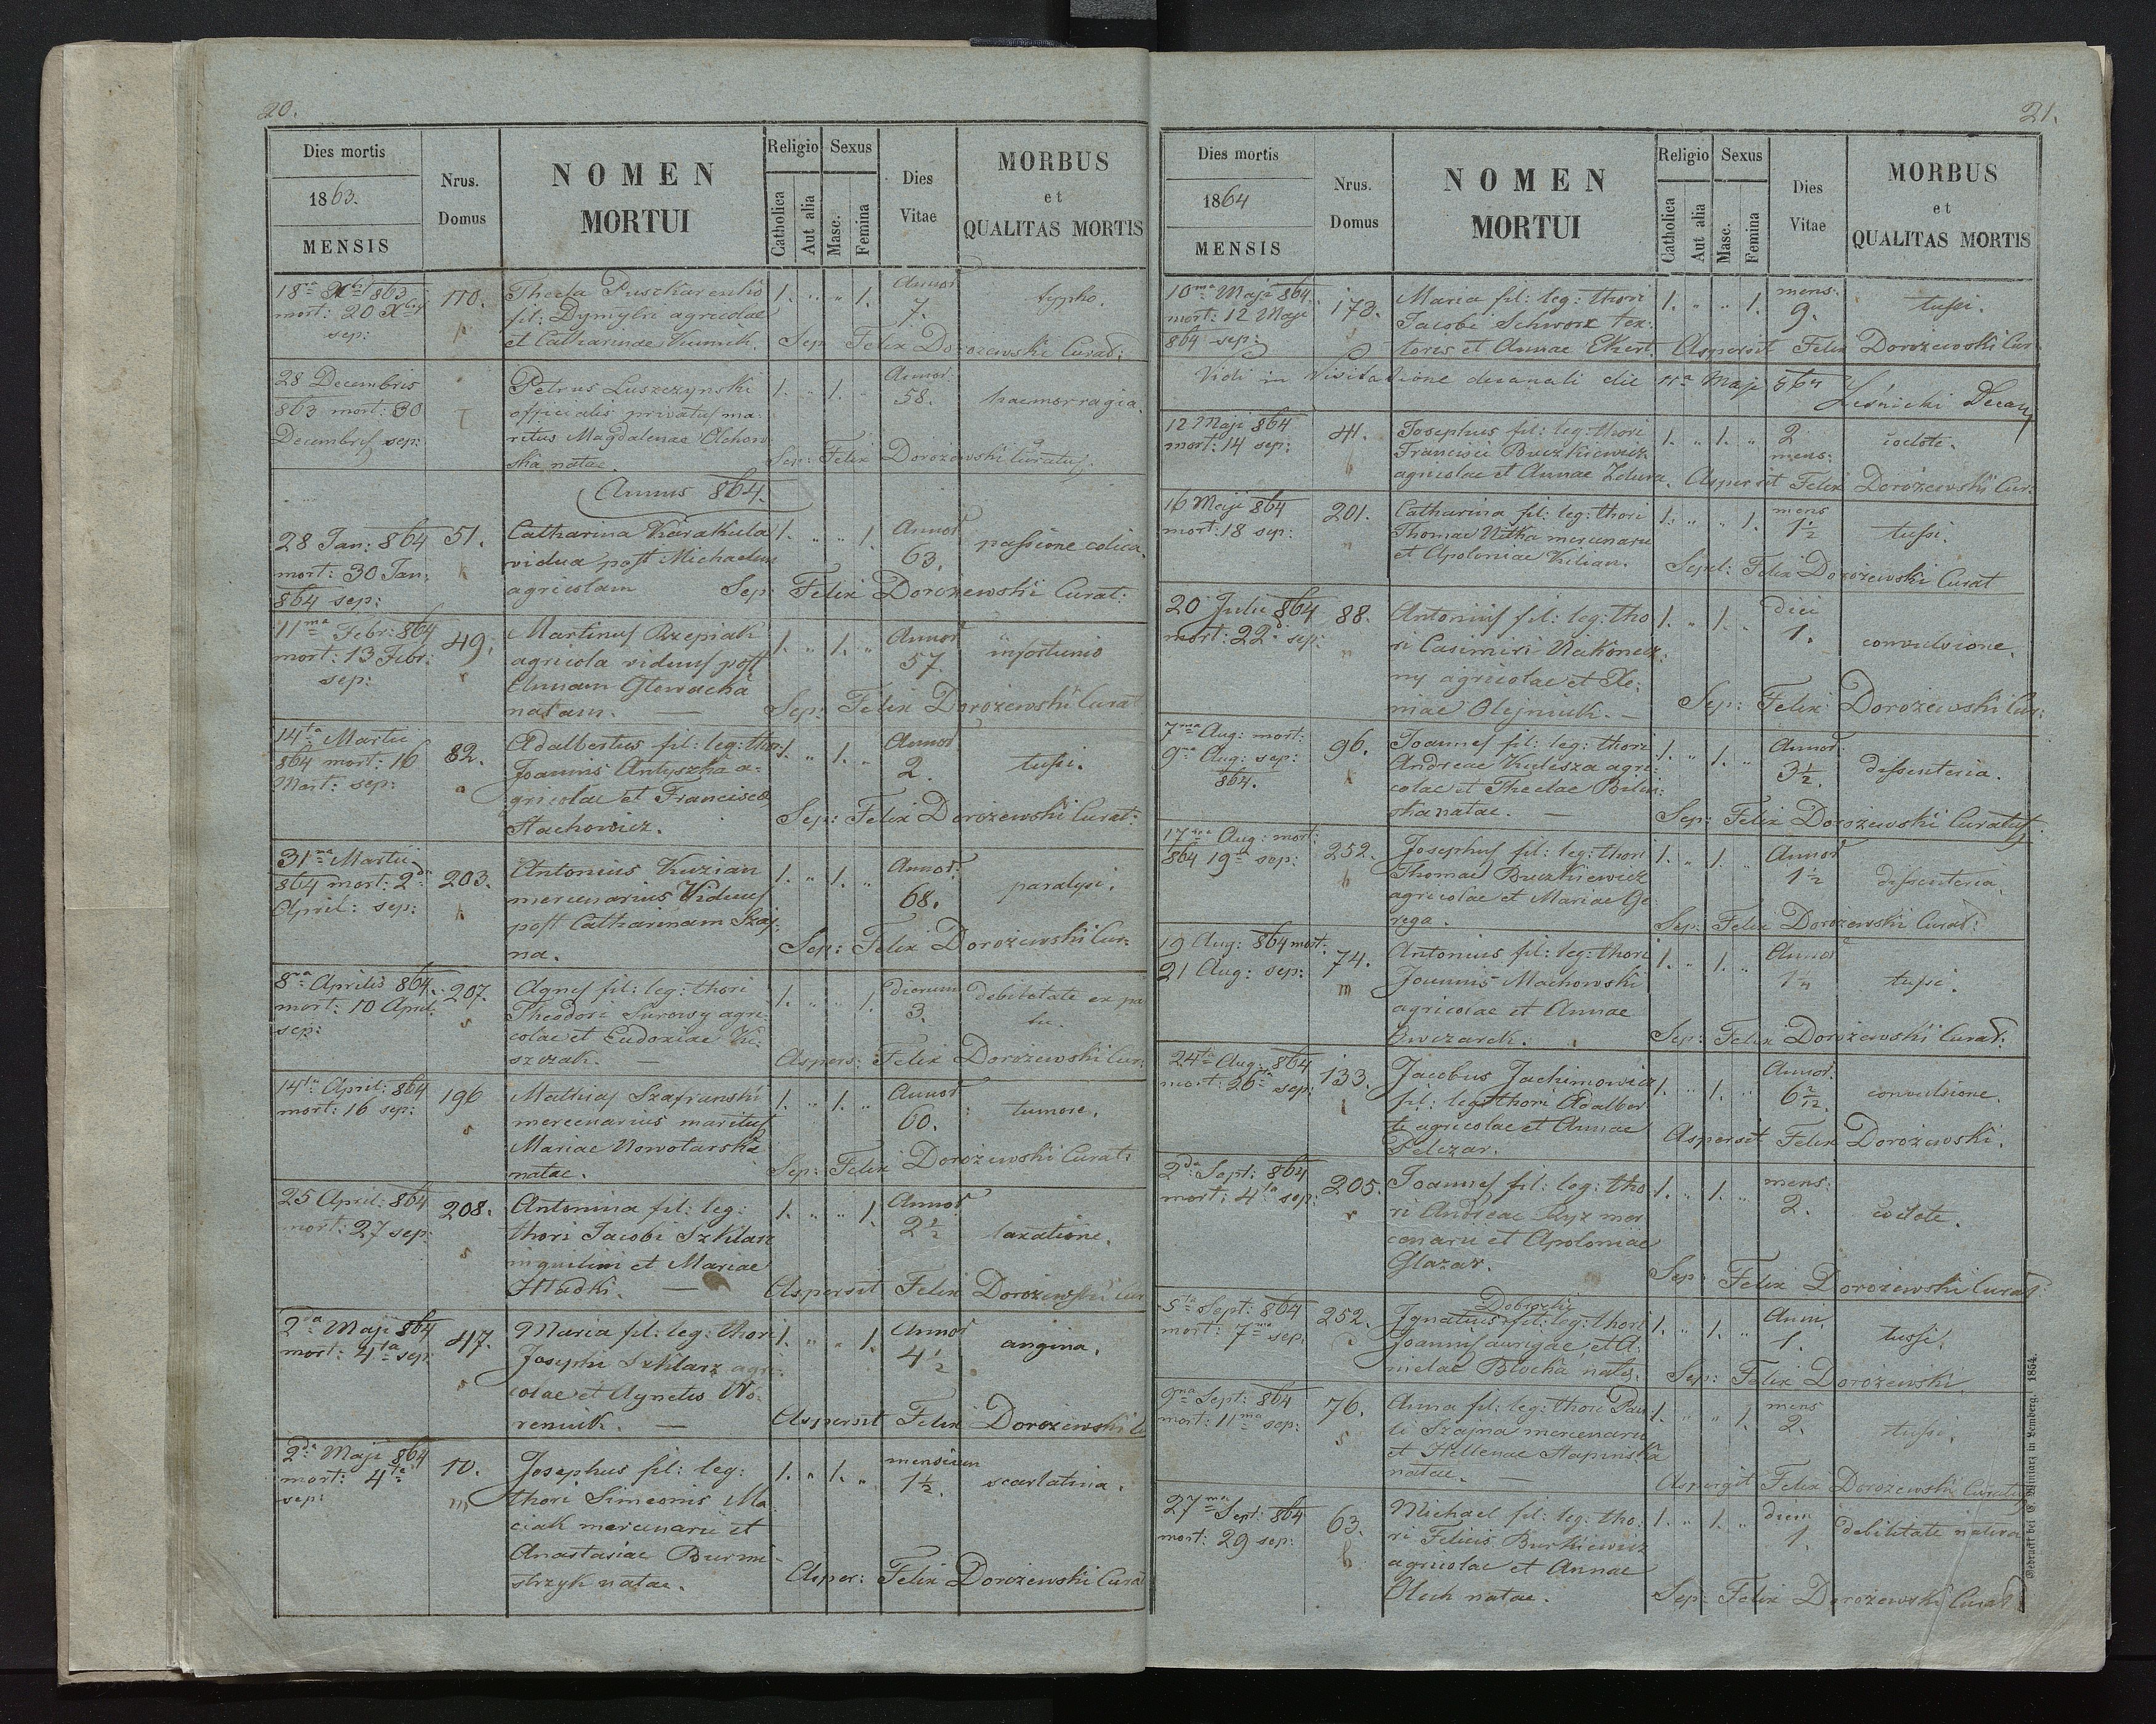 20.
Dies mortis
1863.
MENSIS
Nrus.
Domus
NOMEN
MORTUI
Religio
Catholica
Aut alia
Sexus
Masc.
Femina
Dies
Vitae
MORBUS
et
QUALITAS MORTIS
18va Xbr 863
mort: 20 Xbr
sep:
170.
Thecla Puszkarenko
fil: Dymytri agricolae
et Catharinae Kumik.
1. " " 1.
Annor
7.
typho.
Sep Felix Dorożewski Curat:
28 Decembris
863 mort: 30
Decembris sep:
Petrus Łuszczynski
officialis privatus ma-
ritus Magdalenae Olchow
ska natae.
1. " 1. "
Annor:
58.
haemorragia.
Sep: Felix Dorożewski Curatus.
Annus 864.
28 Jan: 864
mort: 30 Jan:
864 sep:
51.
k
Catharina Karakula
vidua post Michaelem
agricolam
1. " " 1.
Annor
63.
passione colica.
Sep: Felix Dorożewski Curat:
11ma Febr: 864
mort: 13 Febr:
sep:
49.
r
Martinus Rzepiak
agricola viduus post
Annam Głowacha
natam. —
1. " 1. "
Annor
57.
infortunio
Sep: Felix Dorożewski Curat
14ta Martii
864 mort: 16
Mart: sep:
82.
a
Adalbertus fil: leg: thori
Joannis Antyszka a-
gricolae et Francisca
Stachowicz.
1. " 1. "
Annor
2.
tussi.
Sep: Felix Dorożewski Curat:
31ma Martii
864 mort: 2da
April: sep:
203.
k
Antonius Kuzian
mercenarius Viduus
post Catharinam Szaj-
na.
1. " 1. "
Annor:
68.
paralysi.
Sep: Felix Dorożewski Cur:
8va Aprilis 864.
mort: 10 April:
sep:
207.
s
Agnes fil: leg: thori
Theodori Surowy agri-
colae et Eudoxiae Ki-
szczak. —
1. " " 1.
dierum
3.
debilitate ex par
tu.
Aspers: Felix Dorożewski Cur:
14ta April: 864
mort: 16 sep:
196
s
Mathias Szafranski
mercenarius maritus
Mariae Nowotarska
natae.
1. " 1. "
Annor
60.
tumore.
Sep: Felix Dorożewski Curat:
25 April: 864
mort: 27 sep:
208.
s
Antonina fil: leg:
thori Jacobi Szklarz
inquilini et Mariae
Hładki. —
1. " " 1.
Annor
2½
laxatione.
Aspersit Felix Dorożewski Cur
2da Maji 864
mort: 4ta sep:
47.
s
Maria fil: leg: thori
Josephi Szklarz agri-
colae et Agnetis Wo-
reniuk. —
1. " " 1.
Annor
4½
angina.
Aspersit Felix Dorożewski C
2da Maji 864
mort: 4ta
sep:
10.
m
Josephus fil: leg:
thori Simeonis Ma
ciak mercenarii et
Anastasiae Burmi-
strzyk natae.
1. " 1. "
mensium
1½.
scarlatina.
Asper: Felix Dorożewski Curat
21.
Dies mortis
1864
MENSIS
Nrus.
Domus
NOMEN
MORTUI
Religio
Catholica
Aut alia
Sexus
Masc.
Femina
Dies
Vitae
MORBUS
et
QUALITAS MORTIS
10ma Maji 864.
mort: 12 Maji
864 sep:
173.
Maria fil: leg: thori
Jacobi Schworz tex-
toris et Annae Ekert.
1. " " 1.
mens:
9.
tussi.
Aspersit Felix Dorożewski Cur:
Vidi in Visitatione decanali die 11a Maji 864 Leśnicki Decan
12 Maji 864
mort: 14 sep:
41.
b
Josephus fil: leg: thori
Francisci Buczkiewicz
agricolae et Annae Zdura.
1. " 1. "
2
mens:
icelote.
Aspersit Felix Dorożewski Cur:
16 Maji 864
mort: 18 sep:
201.
n
Catharina fil: leg: thori
Thomae Nitka mercenarii
et Apoloniae Kilian.
1. " " 1.
mens
1½
tussi.
Sepel: Felix Dorożewski Curat
20 Julii 864
mort: 22 sep:
88.
n
Antonius fil: leg: tho
ri Casimiri Nakonecz
ny agricolae et Xe-
niae Olejniuk. —
1. " 1. "
diei
1.
convulsione.
Sep: Felix Dorożewski Cur:
7ma Aug: mort:
9na Aug: sep:
864.
96.
k
Joannes fil: leg: thori
Andreae Kulisza agri-
colae et Theclae Bilin-
ska natae. —
1. " 1. "
Annor:
3½.
dissenteria.
Sep: Felix Dorożewski Curatus.
17ma Aug: mort:
864 19na sep:
252.
b
Josephus fil: leg: thori
Thomae Buczkiewicz
agricolae et Mariae Ge
rega.
1. " 1. "
Annor
1½
dissenteria.
Sep: Felix Dorożewski Curat:
19 Aug: 864 mort:
21 Aug: sep:
74.
m
Antonius fil: leg: thori
Joannis Machowski
agricolae et Annae
Owczarek.
1. " 1. "
Annor
1 "
tussi.
Sep: Felix Dorożewski Curat.
24ta Aug: 864
mort: 26ta sep:
133.
i
Jacobus Jachimowicz
fil: leg: thori Adalber
ti agricolae et Annae
Pelczar.
1. " 1. "
Annor:
6 2/12.
convulsione.
Aspersit Felix Dorożewski.
2da Sept: 864
mort: 4ta sep:
205.
r
Joannes fil: leg: tho
ri Andreae Ryz mer
cenarii et Apoloniae
Glazar.
1. " 1. "
mens:
2.
icelote.
Sep: Felix Dorożewski Curat
5ta Sept: 864
mort: 7ma sep:
252.
Dobrzcki
Ignatius fil: leg: thori
Joannis aurigae, et A-
nielae Blocha natis.
1. " 1. "
Anni
1.
tussi.
Sep: Felix Dorożewski
9na Sept: 864
mort: 11ma sep:
76.
s
Anna fil: leg: thori Pau
li Szajna mercenarii
et Hellenae Stapinska
natae. —
1. " " 1.
mens
2.
tussi.
Aspergit Felix Dorożewski Curatus
27ma Sept: 864
mort: 29 sep:
63.
b
Michael fil: leg: tho-
ri Felicis Burkiewicz
agricolae et Annae
Oluh natae.
1. " 1. "
diem
1.
debilitate natura
Sep: Felix Dorożewski Curat
Gedruckt bei E. Winiarz in Lemberg. 1854.